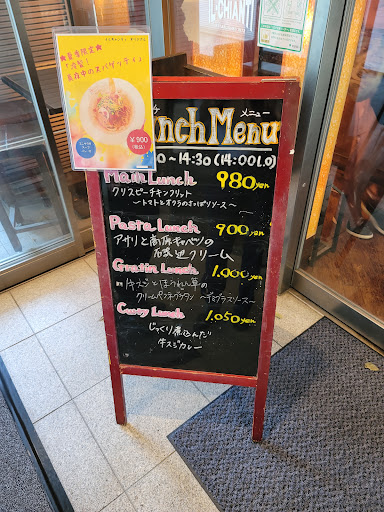 CHIANTI
￥900
(税込)
nch Menu
メニュー
0～14:30 (14:00 L.O)
Main Lunch 980yen
クリスピーチキンフリット
～トマトとオクラのさっぱりソース～
Pasta Lunch 900yen
アサリと高原キャベツの
クリーム
Gratin Lunch 1.000yen
牛スジとほうれん草の
クリームペンネグラタン ～デミグラスソース～
Curry Lunch 1.050yen
じっくり煮込んだ
牛スジカレー